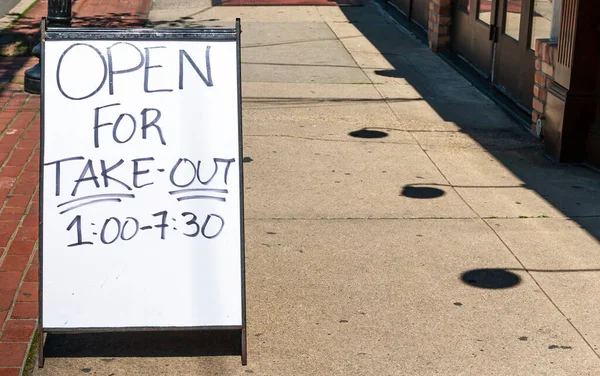 OPEN
FOR
TAKE-OUT
1:00-7:30